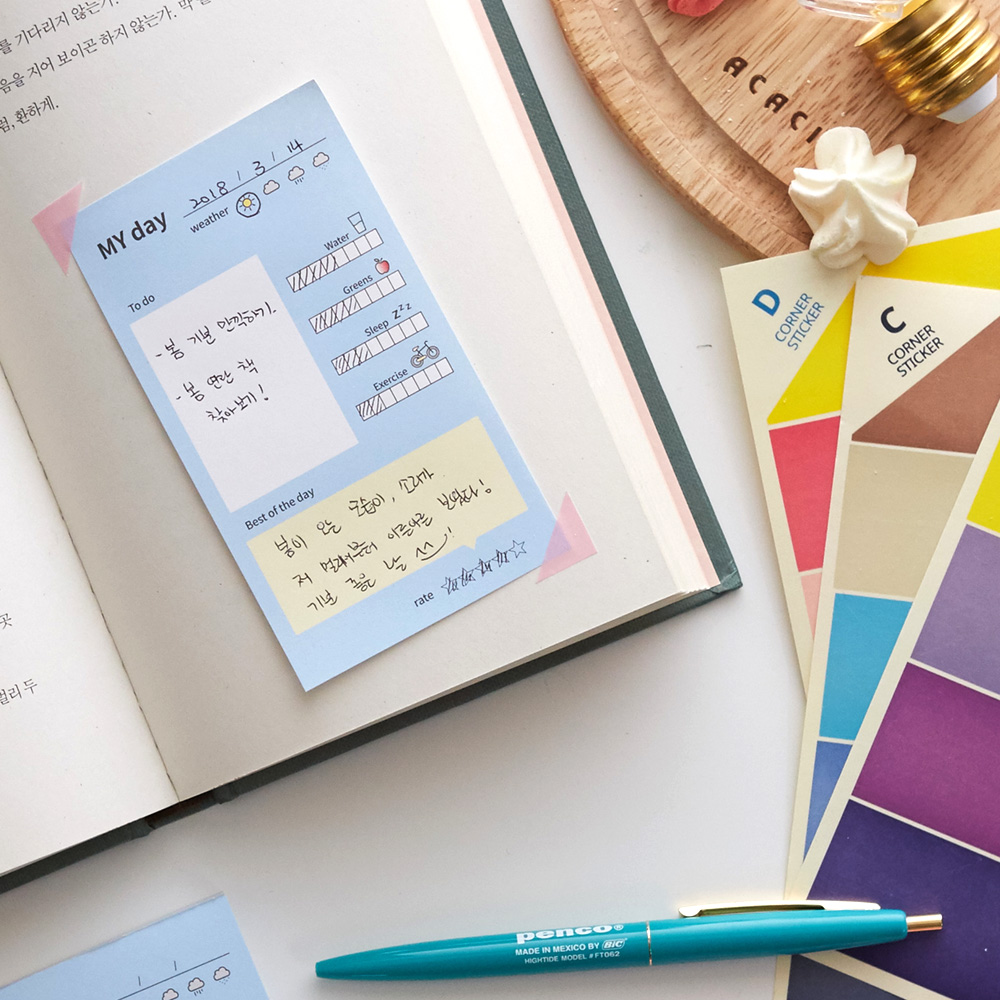 를 기다리지 않는가.
음을 지어 보이곤 하지 않는가. 막
럼, 환하게.
MY day
2018 / 3 / 14
weather
To do
- 봄 기분 만끽하기.
- 봄 연관 책
찾아보기!
Water
Greens
Sleep zzz
Exercise
Best of the day
봄이 오는 모습이, 소리가
저 멀리서부터 아른아른 보였다!
기분 좋은 날
rate
곳
멀리 두
ACACI
D
CORNER
STICKER
C
CORNER
STICKER
penco®
MADE IN MEXICO BY BIC®
HIGHTIDE MODEL #FT062